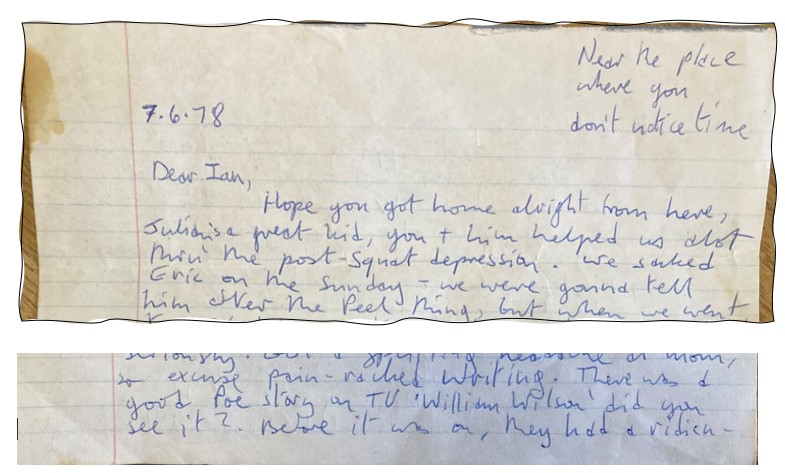 Near the place
where you
don't notice time
7.6.78
Dear Ian,
Hope you got home alright from here,
Julian's a great kid, you + him helped us alot
thru' the post-Squat depression. We sacked
Eric on the Sunday - we were gonna tell
him after the Peel thing, but when we went
seriously. Got a splitting headache at mom,
so excuse pain-racked writing. There was a
good Poe story on TV 'William Wilson' did you
see it?. Before it was on, they had a ridicu-